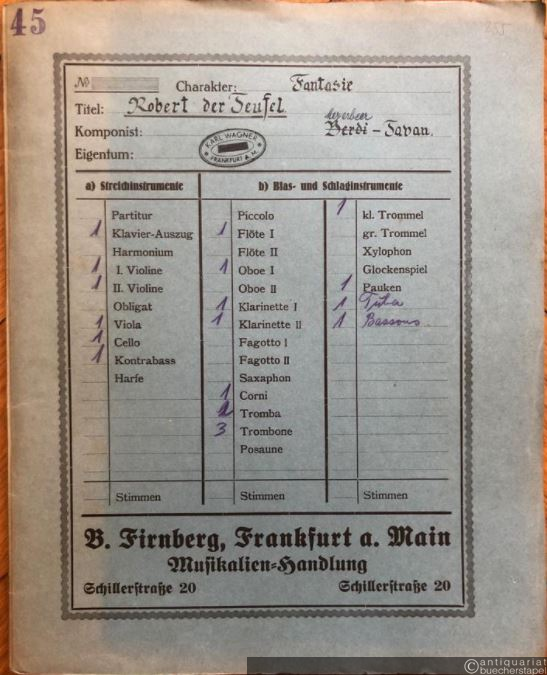 45
355
№
Charakter: Fantasie
Titel: Robert der Teufel
Meyerbeer
Komponist: Verdi - Tavan.
Eigentum: KARL WAGNER FRANKFURT A. M.
a) Streichinstrumente b) Blas- und Schlaginstrumente
Partitur
1 Klavier-Auszug
Harmonium
1 I. Violine
1 II. Violine
Obligat
1 Viola
1 Cello
1 Kontrabass
Harfe
Stimmen
Piccolo
1 Flöte I
Flöte II
1 Oboe I
Oboe II
1 Klarinette I
1 Klarinette II
Fagotto I
Fagotto II
Saxaphon
1 Corni
2 Tromba
3 Trombone
Posaune
Stimmen
1 kl. Trommel
gr. Trommel
Xylophon
Glockenspiel
1 Pauken
1 Tuba
1 Bassons
Stimmen
B. Firnberg, Frankfurt a. Main
Musikalien-Handlung
Schillerstraße 20 Schillerstraße 20
antiquariat
buecherstapel